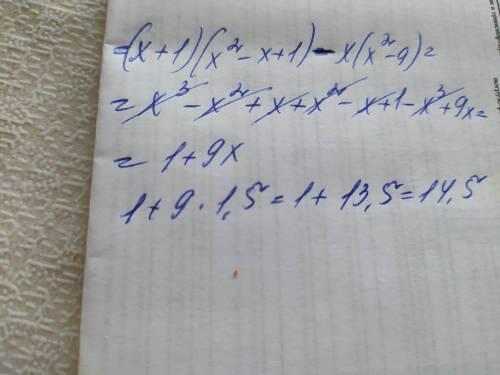 =(x+1)(x²-x+1)-x(x²-9)=
=x³-x²+x+x²-x+1-x³+9x=
= 1+9x
1+9·1,5=1+13,5=14,5